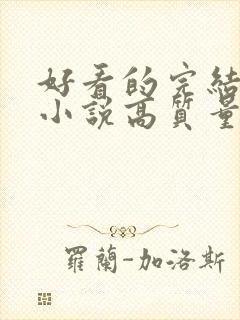 好看的完結
小說高質量
羅蘭-加洛斯